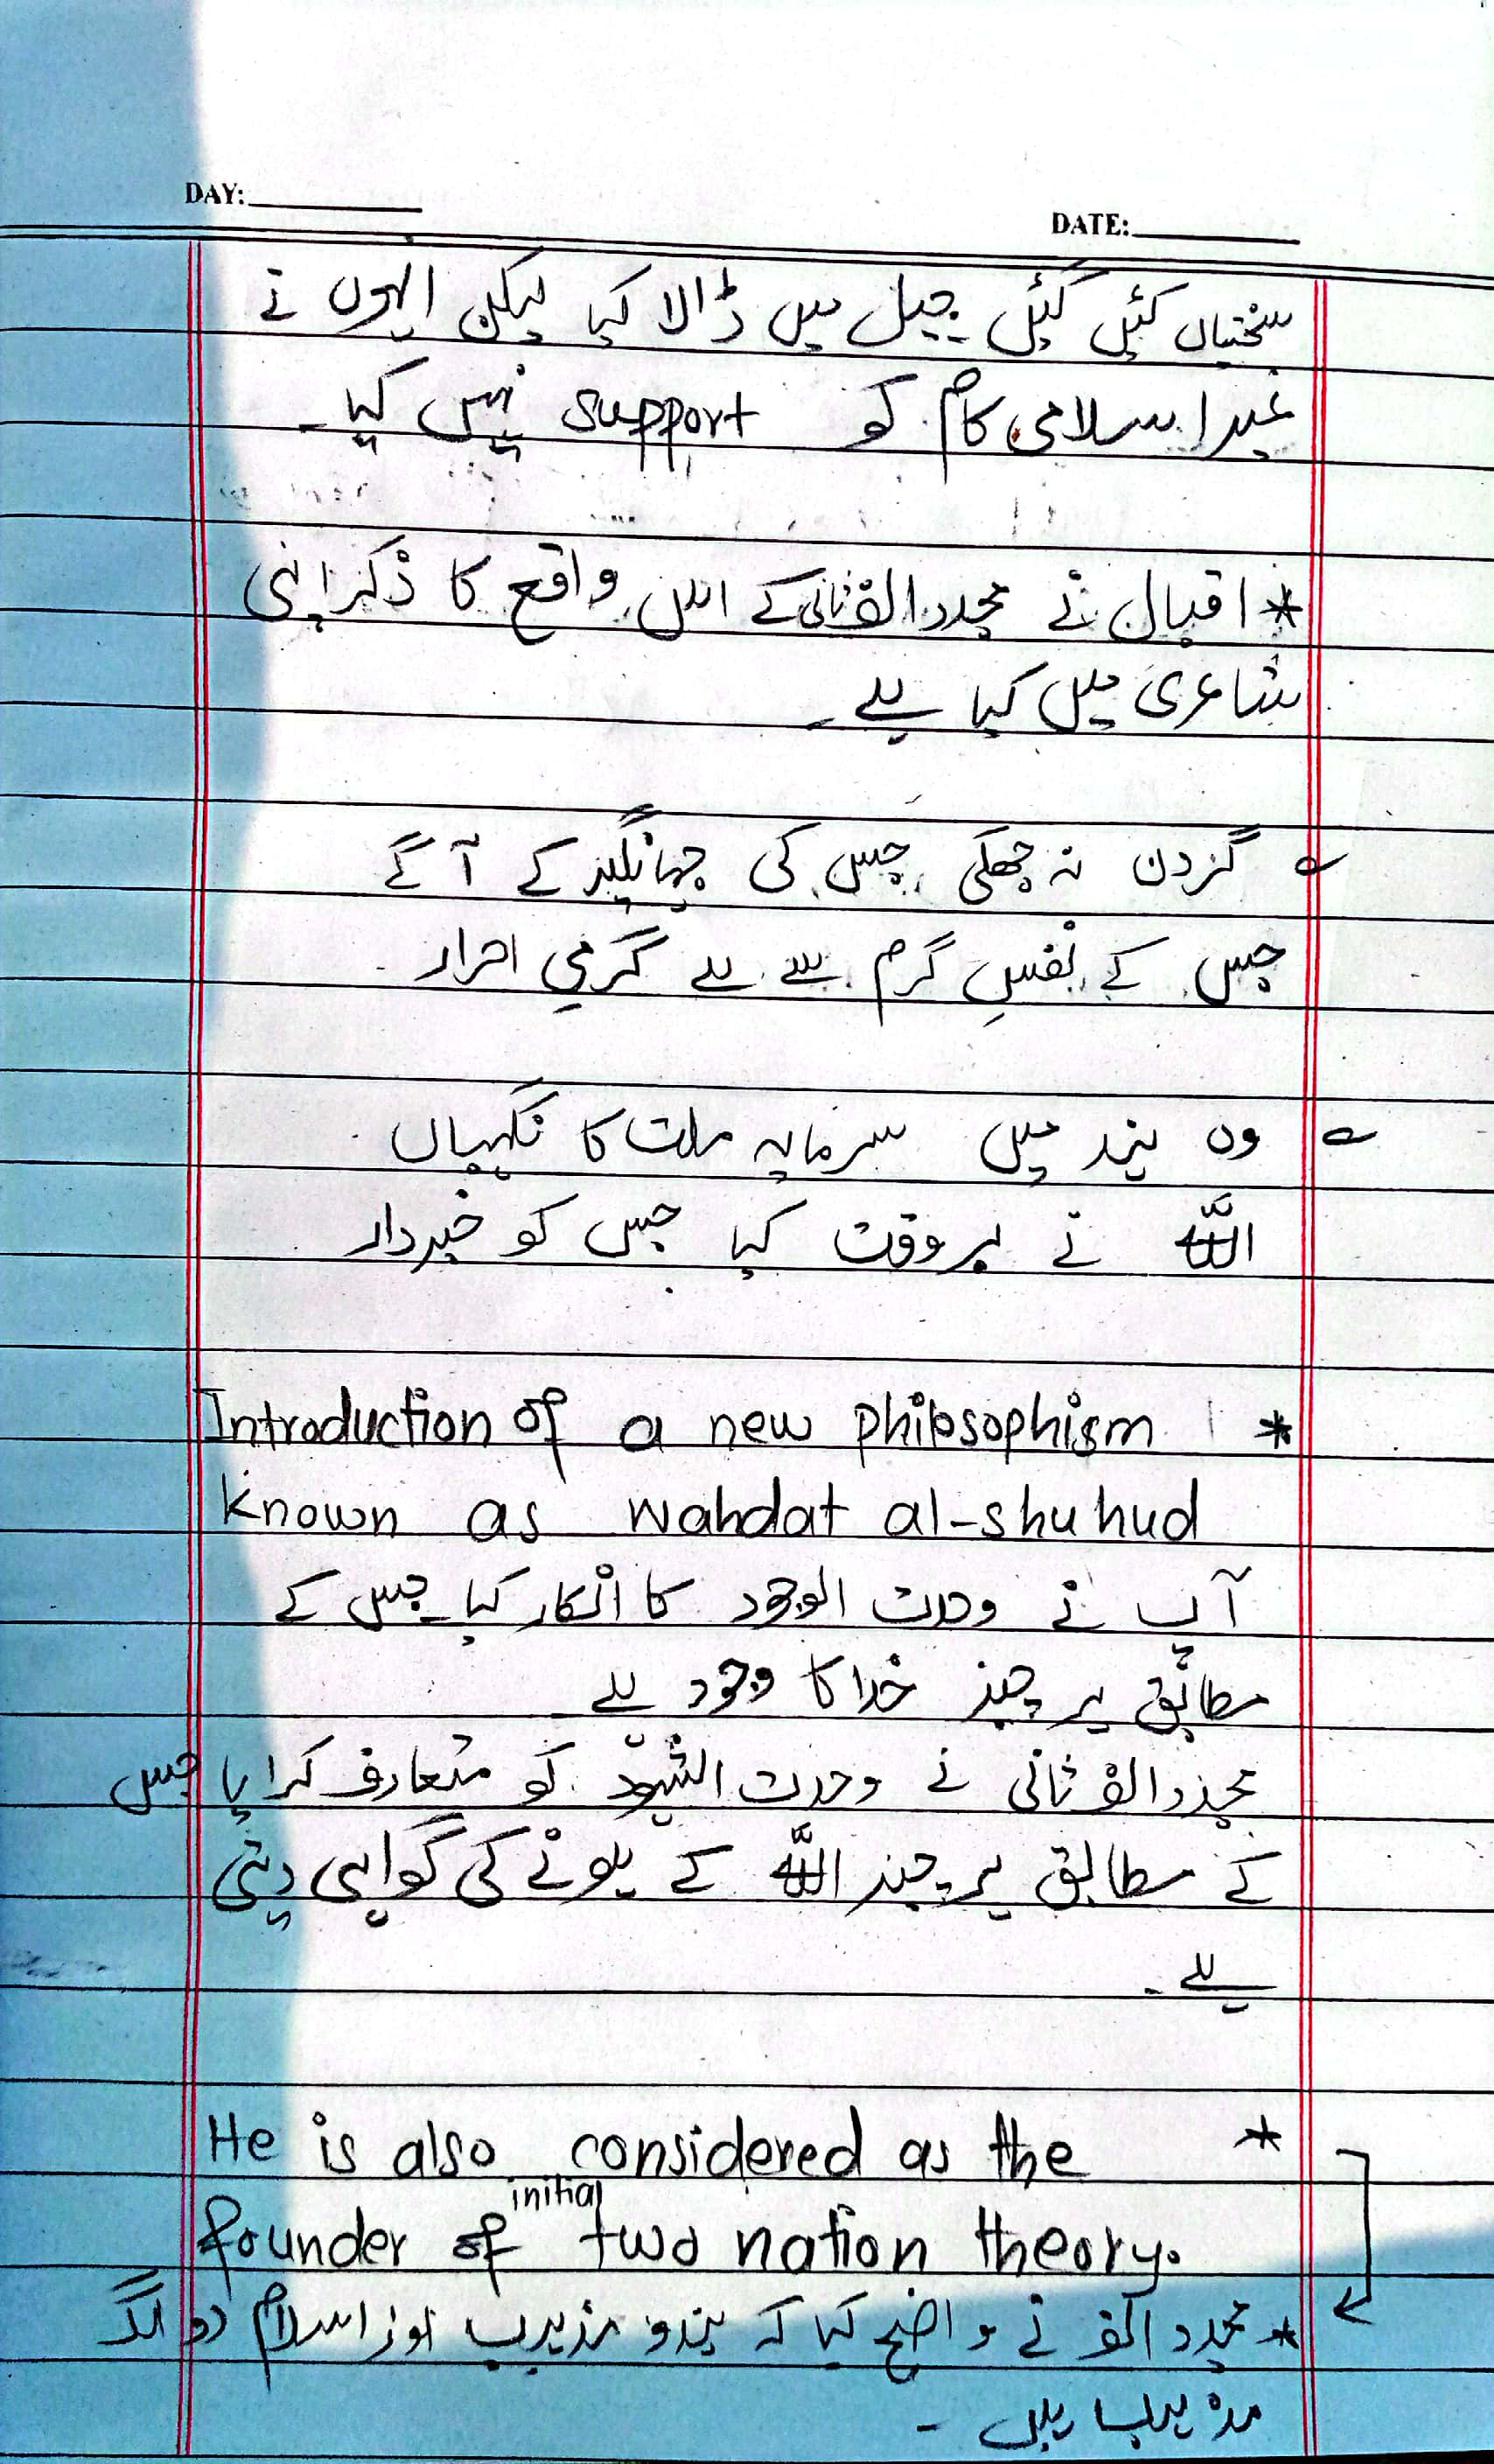 DAY:
DATE:
سختیاں کئیں گئیں جیل میں ڈالا گیا لیکن انہوں نے
غیر اسلامی کام کو support نہیں کیا۔
* اقبال نے مجدد الف ثانی کے اس واقع کا ذکر اپنی
شاعری میں کیا ہے۔
؎ گردن نہ جھکی جس کی جہانگیر کے آگے
جس کے نفسِ گرم سے ہے گرمی احرار
؎ وہ ہند میں سرمایہ ملت کا نگہباں
اللّٰہ نے بروقت کیا جس کو خبردار
* Introduction of a new philosophism
known as wahdat al-shuhud
آپ نے وحدت الوجود کا انکار کیا۔ جس کے
مطابق ہر چیز خدا کا وجود ہے
مجدد الف ثانی نے وحدت الشہود کو متعارف کرایا جس
کے مطابق ہر چیز اللّٰہ کے ہونے کی گواہی دیتی
ہے۔
* He is also considered as the
founder of initial two nation theory.
* مجدد الف نے واضح کیا کہ ہندو مذہب اور اسلام دو الگ
مذہب ہیں۔